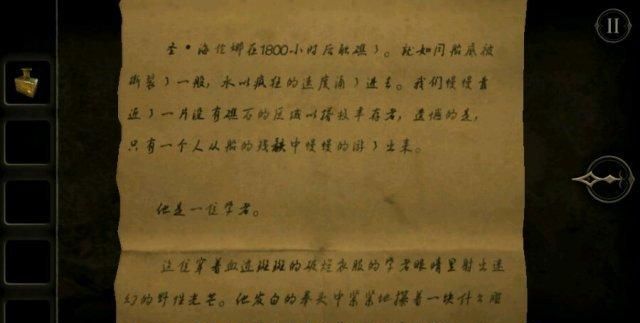 圣·海伦娜在1800小时后触礁）。就如同船底被
撕裂）一般，水以疯狂的速度涌）进去。我们慢慢靠
近）一片没有礁石的区域以搭救幸存者，遗憾的是，
只有一个人从船的残骸中慢慢的游）出来。
他是一位学者。
这位穿着血迹斑斑的破烂衣服的学者眼睛里射出迷
幻的野性光芒。他发白的拳头中紧紧地攥着一块什么